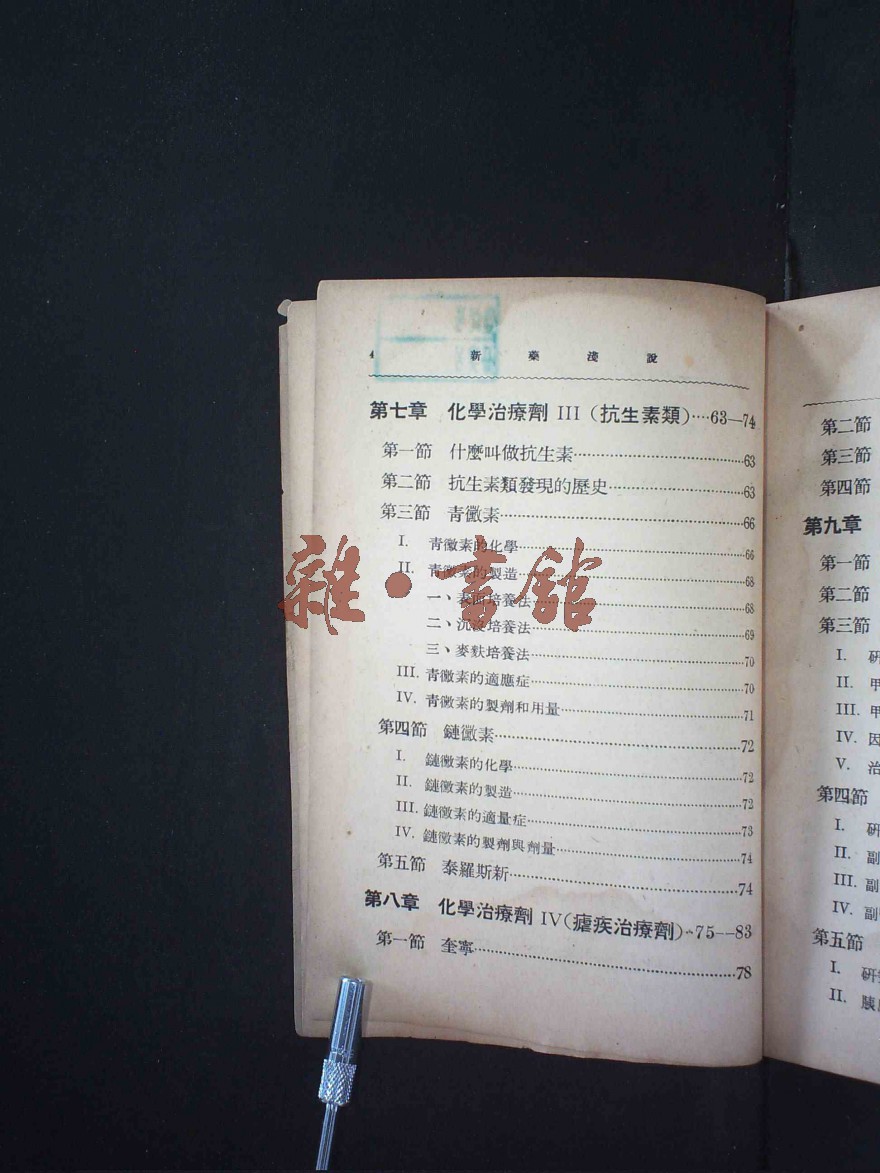 4 新藥淺說
第七章 化學治療劑 III (抗生素類)····63—74
第一節 什麼叫做抗生素····63
第二節 抗生素類發現的歷史····63
第三節 青黴素····66
I. 青黴素的化學····66
II. 青黴素的製造····68
一、表面培養法····68
二、沉沒培養法····69
三、麥麩培養法····70
III. 青黴素的適應症····70
IV. 青黴素的製劑和用量····71
第四節 鏈黴素····72
I. 鏈黴素的化學····72
II. 鏈黴素的製造····72
III. 鏈黴素的適量症····73
IV. 鏈黴素的製劑與劑量····74
第五節 泰羅斯新····74
第八章 化學治療劑 IV(瘧疾治療劑)··75—83
第一節 奎寧····78
雜·書館
第二節
第三節
第四節
第九章
第一節
第二節
第三節
I. 研
II. 甲
III. 甲
IV. 因
V. 治
第四節
I. 研
II. 副
III. 副
IV. 副
第五節
I. 研
II. 胰